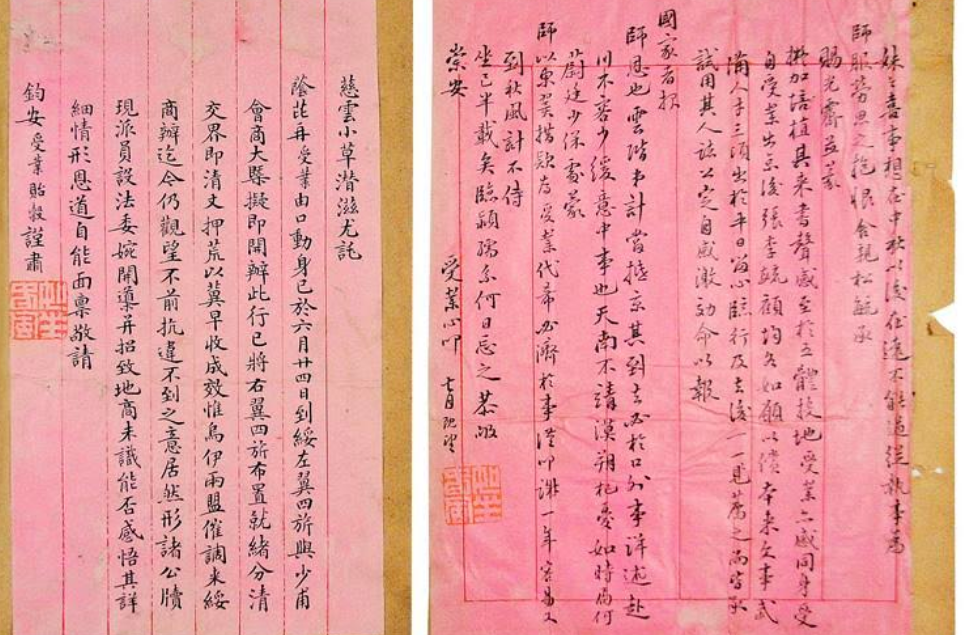 妹之喜事想在中秋以後在遠不能追從執事為
師服勞思之抱恨舍親松毓承
賜光霽並蒙
加培植其來書聲感至於五體投地受業亦感同身受
自受業出京後張李毓顧均各如願以償本來文事武
備人才三須出於平日留心臨行及去後一一見薦之尚皆
試用其人該公定自感激効命以報
國家者報
師恩也雲階弟計當抵京其到京必於口外事詳述赴
川不容少緩意中事也天南不靖漠朔杞憂如時局何
蔚廷少保處蒙
師以東吳措款為受業代希必濟於事謹叩謝一年容易又
到秋風計不侍
坐已半載矣臨穎孺慕何日忘之恭叩
崇安 受業心叩 七月既望
慈雲小草潛滋尤託
蔭芘再受業由口動身已於六月廿四日到綏左翼四旂與少甫
會商大槩擬即開辦此行已將右翼四旂布置就緒分清
交界即清丈押荒以冀早收成效惟烏伊兩盟催調來綏
商辦迄今仍觀望不前抗違不到之意居然形諸公牘
現派員設法委婉開導并招致地商未識能否感悟其詳
細情形恩道自能面稟敬請
鈞安 受業貽穀謹肅